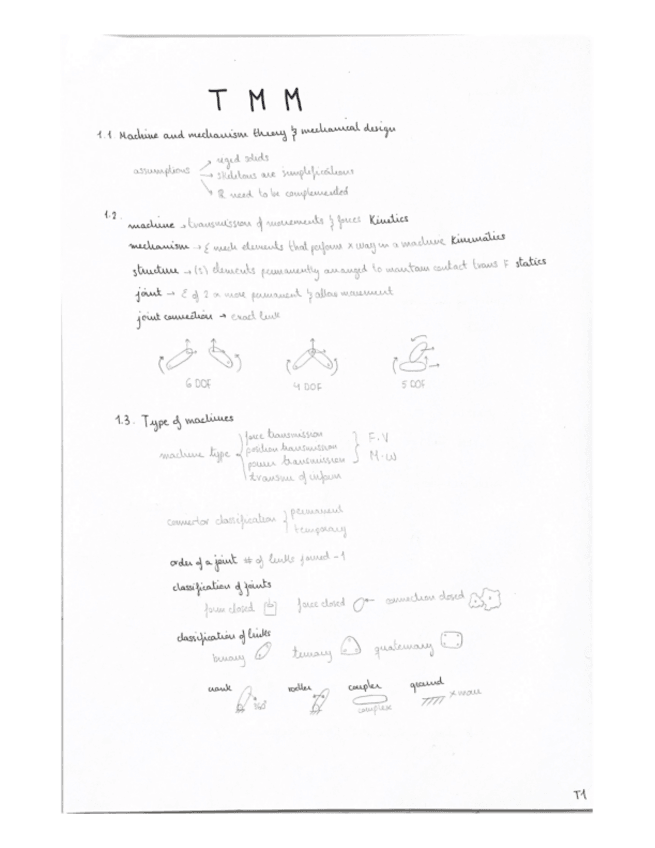 TMM
1.1. Machine and mechanism theory & mechanical design
rigid solids
assumptions → skeletons are simplifications
R need to be complemented
1.2.
machine → transmission of movements & forces Kinetics
mechanism → Σ mech elements that perform x way in a machine Kinematics
structure → (s) elements permanently arranged to maintain contact trans F statics
joint → Σ of 2 or more permanent & allow movement
joint connection → exact link
6 DOF 4 DOF 5 DOF
1.3. Type of machines
force transmission
machine type position transmission F·V
power transmission M·ω
transm of inform
connector classification permanent
temporary
order of a joint # of links joined -1
classification of joints
form closed force closed connection closed
classification of links
binary ternary quaternary
crank rocker coupler ground
360 complex x mov
T1